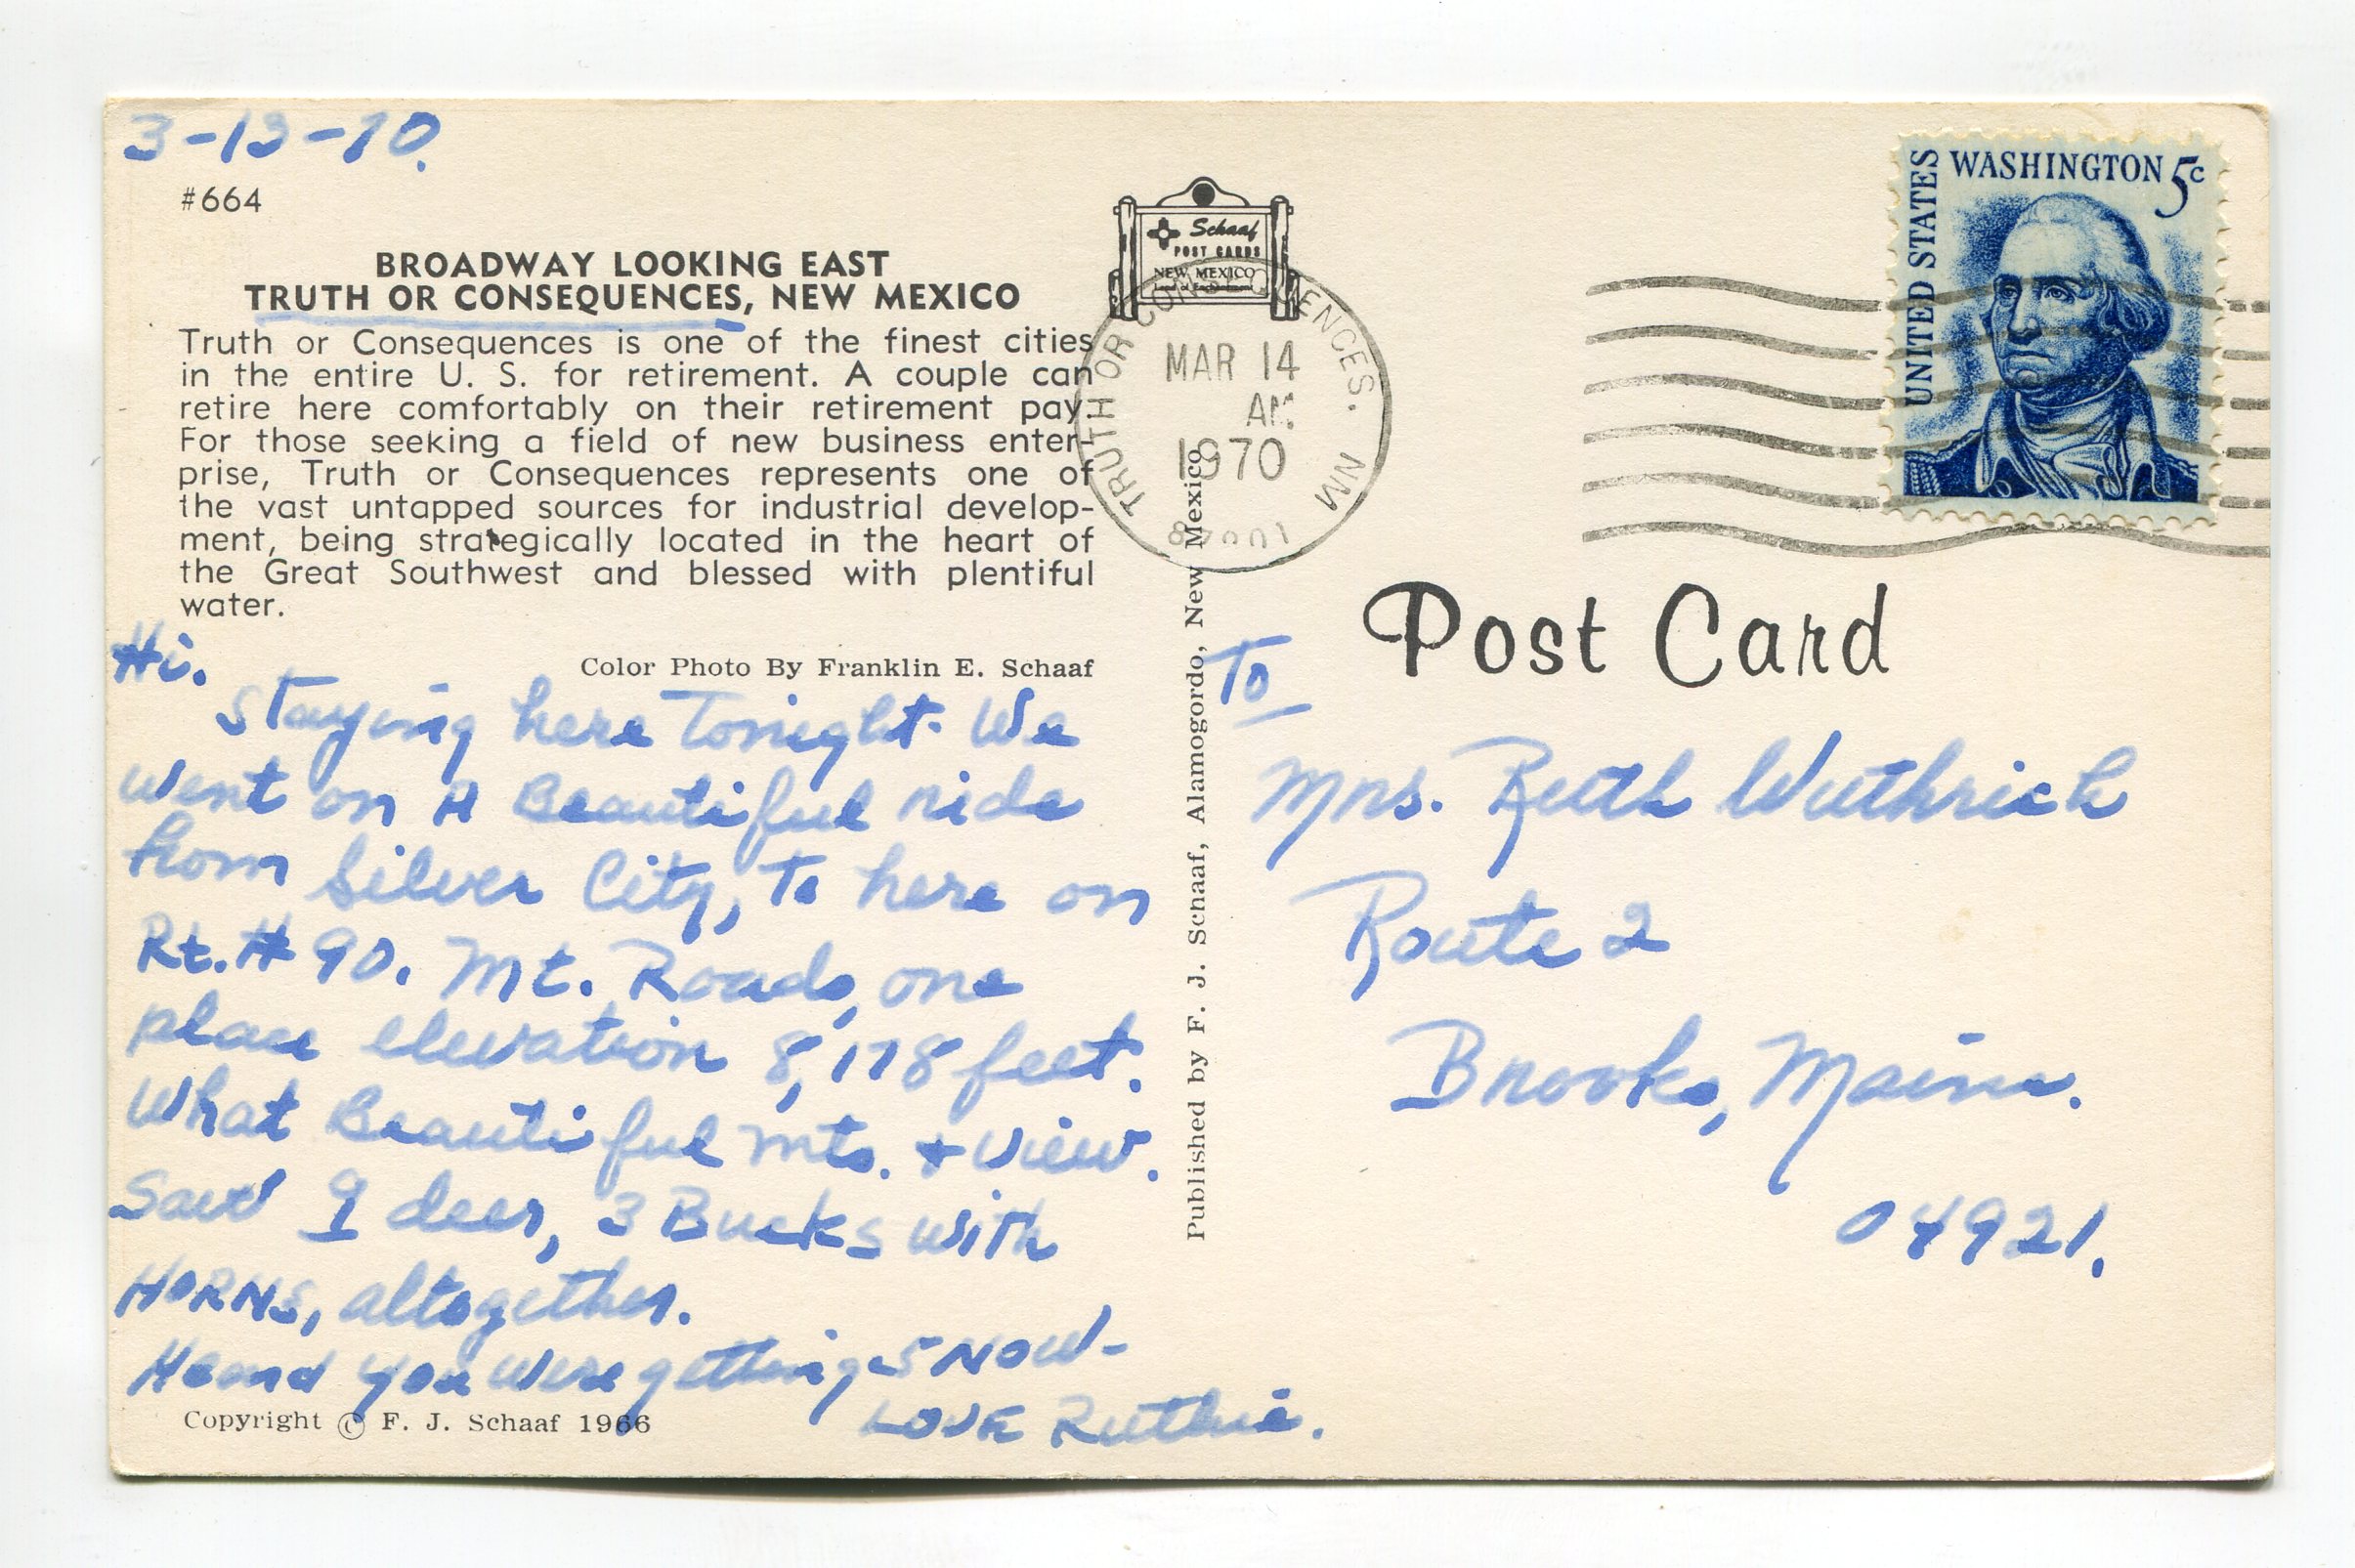 3-13-70.
#664
BROADWAY LOOKING EAST
TRUTH OR CONSEQUENCES, NEW MEXICO
Truth or Consequences is one of the finest cities
in the entire U. S. for retirement. A couple can
retire here comfortably on their retirement pay.
For those seeking a field of new business enter-
prise, Truth or Consequences represents one of
the vast untapped sources for industrial develop-
ment, being strategically located in the heart of
the Great Southwest and blessed with plentiful
water.
Color Photo By Franklin E. Schaaf
Hi.
Staying here Tonight. We
went on A Beautiful ride
from Silver City, To here on
Rt. # 90. Mt. Roads, one
place elevation 8,178 feet.
What Beautiful mts. + view.
Saw 9 deer, 3 Bucks with
HORNS, altogether.
Heard you were getting SNOW-
LOVE Ruthie.
Copyright © F. J. Schaaf 1966
Schaaf
POST CARDS
NEW MEXICO
Land of Enchantment
TRUTH OR CONSEQUENCES. NM
MAR 14
AM
1970
87901
Published by F. J. Schaaf, Alamogordo, New Mexico
UNITED STATES
WASHINGTON 5c
Post Card
To
Mrs. Ruth Wuthrich
Route 2
Brooks, Maine.
04921.